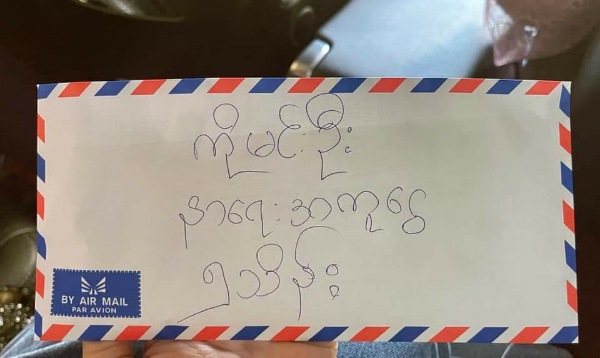 ကိုမင်းဦး
နာရေးအကူငွေ
၅သိန်း
BY AIR MAIL
PAR AVION